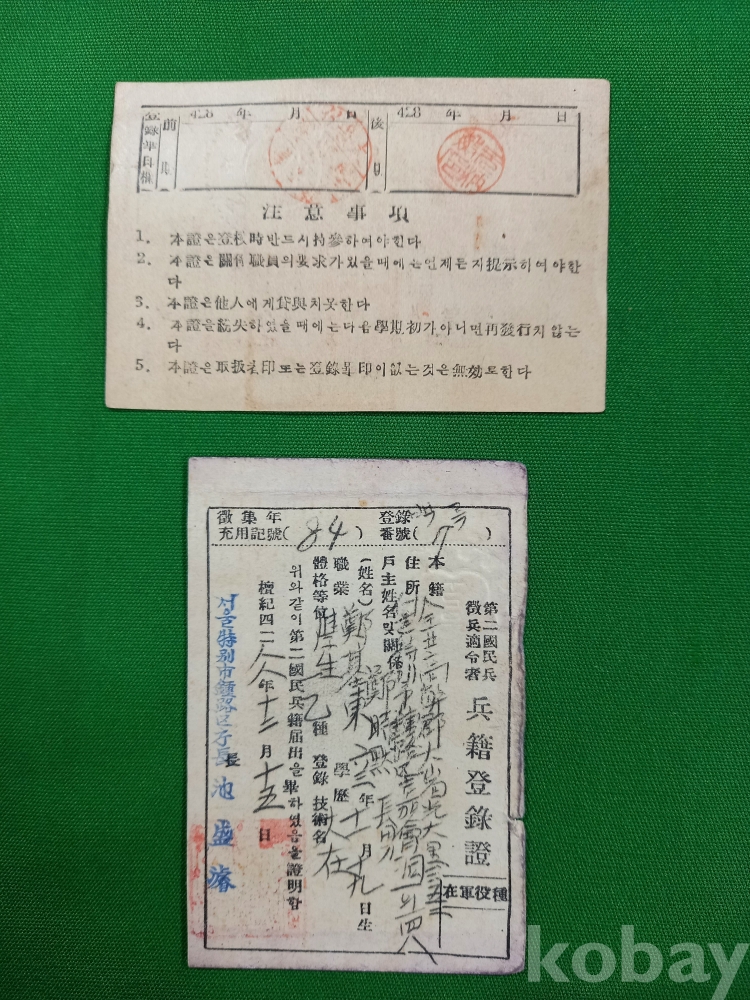 登錄年月日欄 前期 428 年 月 日 後期 428 年 月 日
注意事項
1. 本證은登校時반드시持參하여야한다
2. 本證은關係職員의要求가있을때에는언제든지提示하여야한
다
3. 本證은他人에게貸與치못한다
4. 本證을紛失하였을때에는다음學期初가아니면再發行치않는
다
5. 本證은取扱者印또는登錄畢印이없는것은無効로한다
徵集年
充用記號(84)
登錄
番號( 7 )
第二國民兵
徵兵適令者 兵籍登錄證
在軍役種
本籍
住所
戶主姓名및關係 鄭時默 長男
(姓名) 鄭 東 年十一月十九日生
職業 學生 學歷 大在
體格等位 乙種 登錄技術名
위와같이第二國民兵籍届出을畢하였음을證明함
檀紀四二八八年十二月十五日
서울特別市鍾路區廳長 池盛濬
kobay